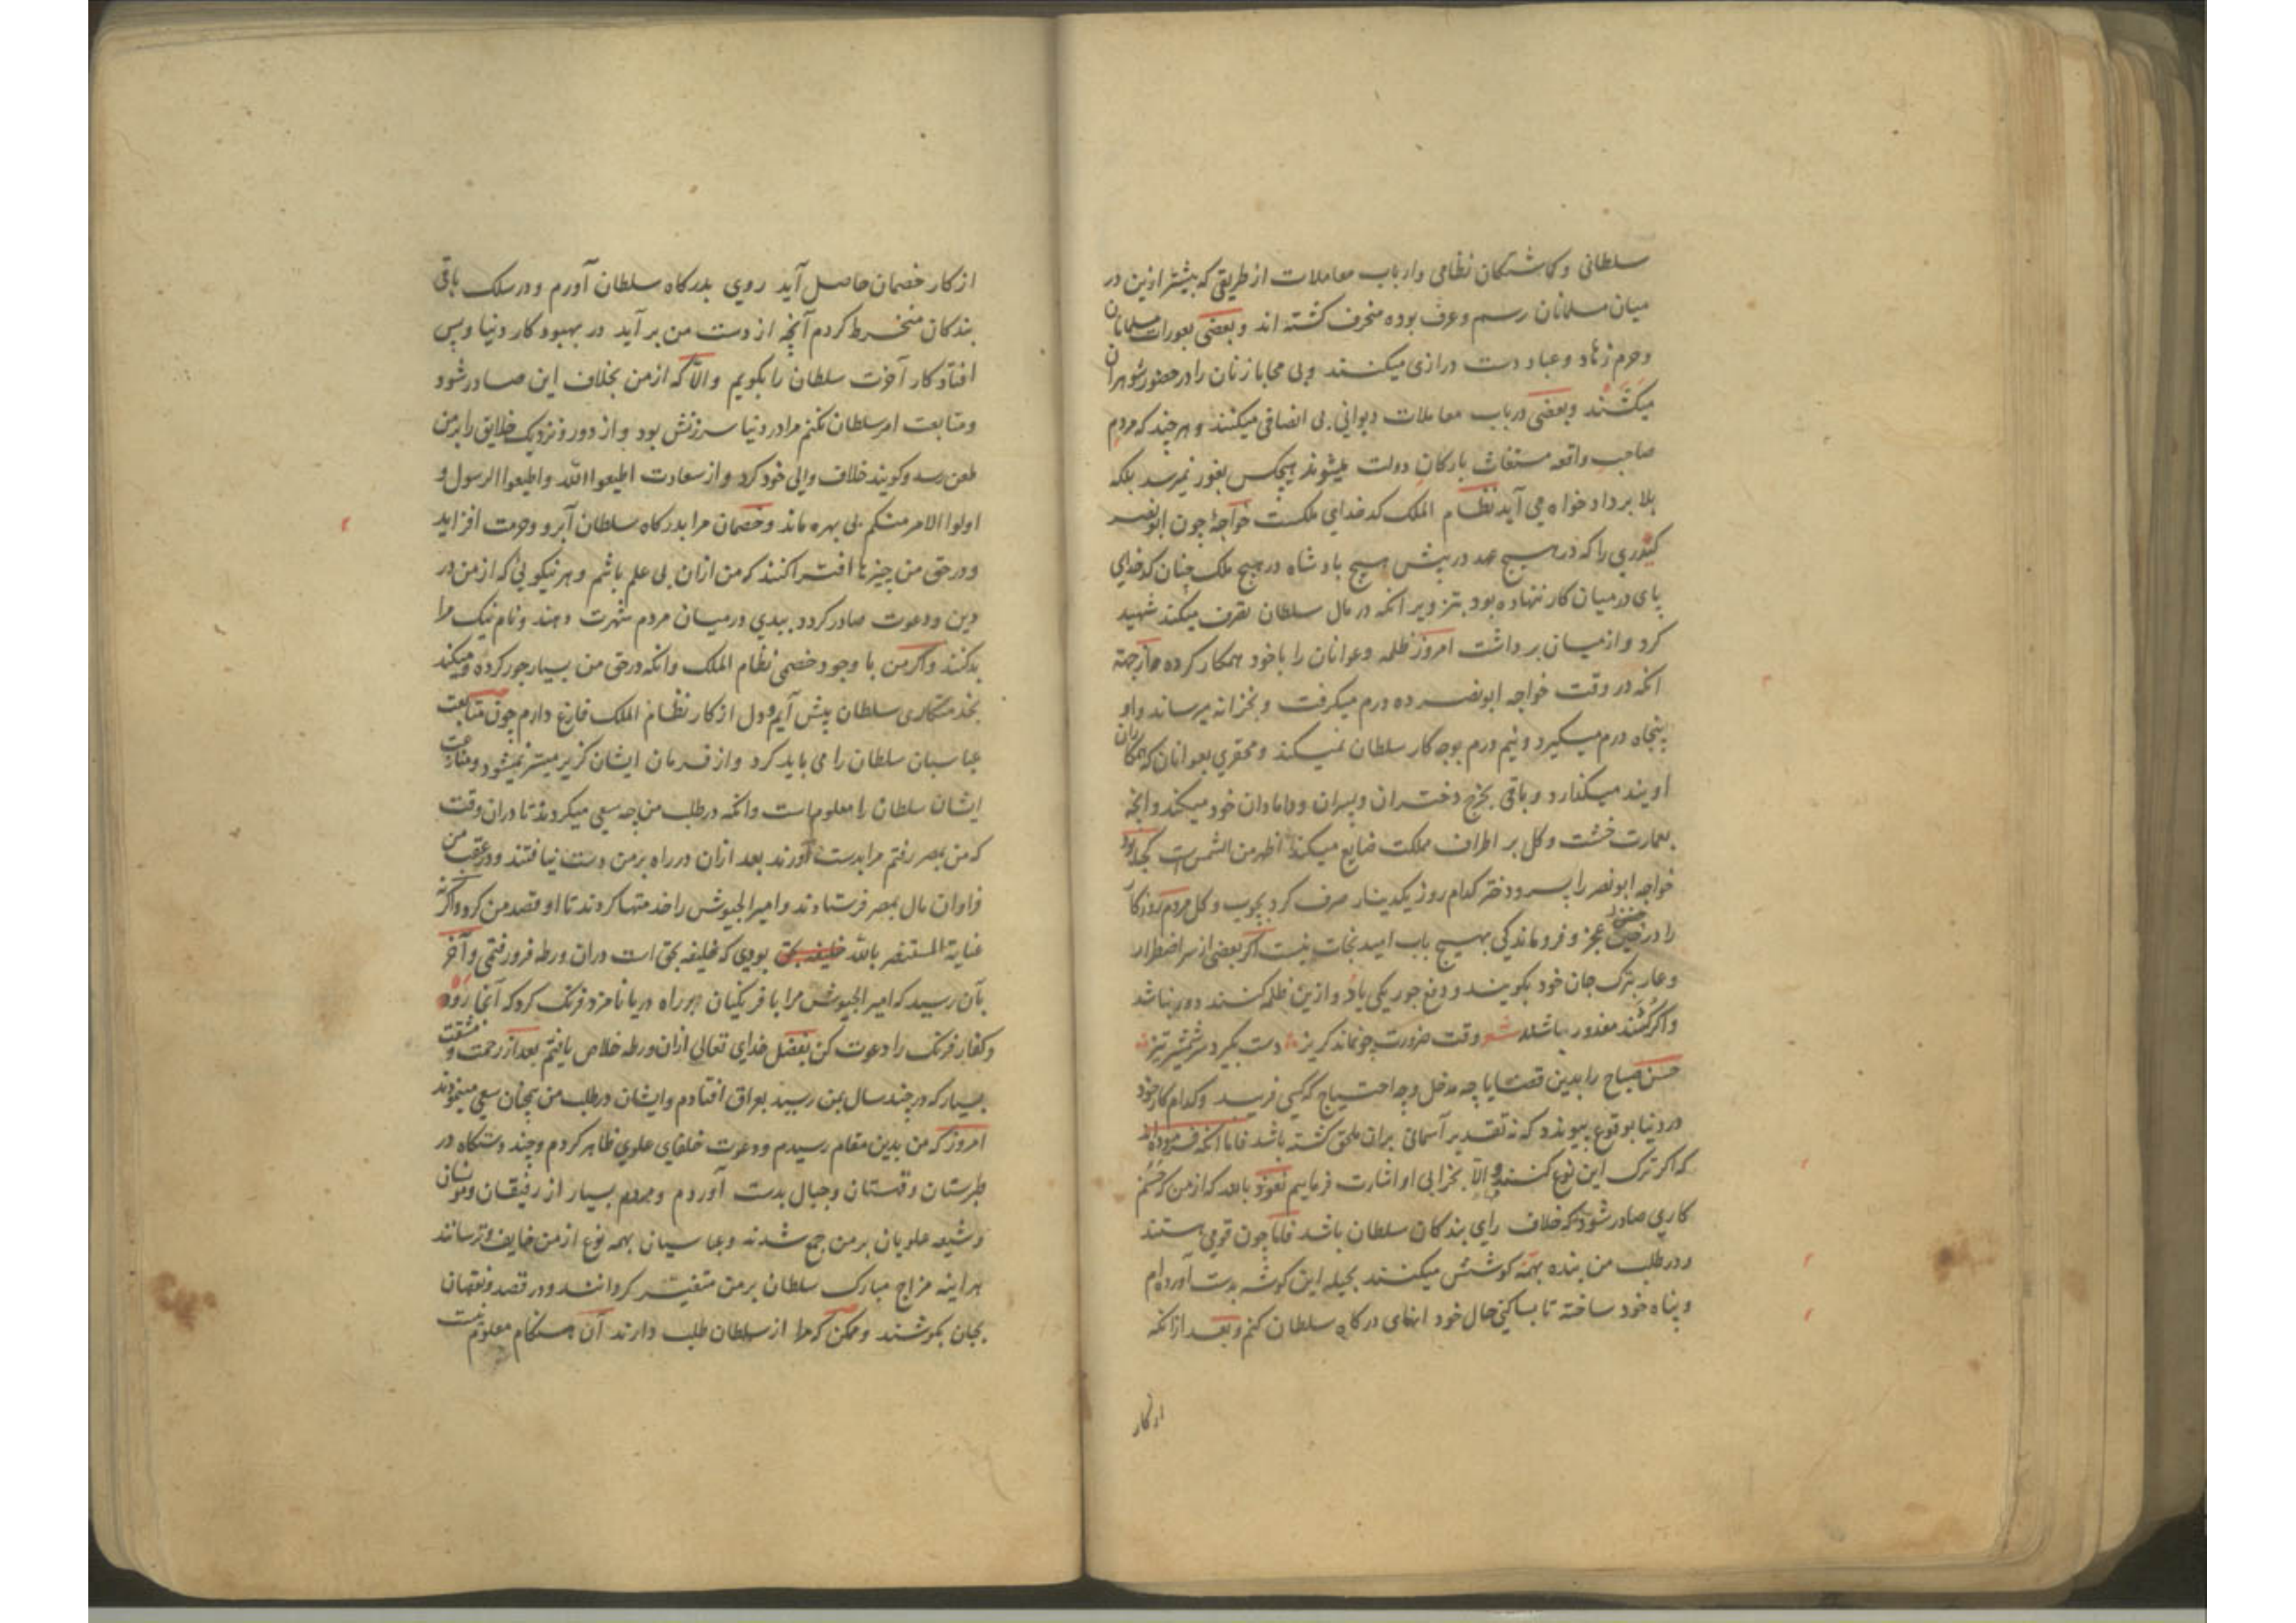 سلطانی و کماشتکان نظامی وارباب معاملات از طریقی که بیشتر ازین در
میان مسلمانان رسم و عرف بوده منحرف کشته اند و بعضی بعورات مسلمانان
و حرم زهاد و عباد دست درازی میکنند و بی محابا زنان را در حضور شوهران
میکشند و بعضی در باب معاملات دیوانی بی انصافی میکنند و هر چند که مردم
صاحب واقعه مستغاث بارکان دولت میشوند هیچکس بغور نمیرسد بلکه
بلا بر داد خواه می آید نظام الملک که خدای ملکست خواجهٔ چون ابونصر
کندری را که در هیچ عهد در پیش هیچ بادشاه در هیچ ملک چنان کدخدای
پای در میان کار ننهاده بود بتزویر انکه در مال سلطان تصرف میکند شهید
کرد و از میان برداشت امروز ظلمه و عوانان را با خود همکار کرده
انکه در وقت خواجه ابونصر ده درم میکرفت و بخزانه میرساند و او
پنجاه درم میکیرد و نیم درم بوجه کار سلطان نمیکند و محقری بعوانان که همکاران
اویند میکذارد و باقی بخرج دختران و پسران و دامادان خود میکند و انچه
بعمارت خشت و کل بر اطراف مملکت ضایع میکند اظهر من الشمس است کجا بود
خواجه ابونصر را پسر و دختر کدام روز یکدینار صرف کرد بچوب و کل مردم روزکار
را در چنین عجز و فروماندکی بهیچ باب امید نجات نیست اکر بعضی از سر اضطرار
و عار بترک جان خود بکویند و دفع جور یکی یا دو ازین ظلمه کنند دور نباشد
و اکر کنند معذور باشند شعر وقت ضرورت چو نماند کریز دست بکیرد سر شمشیر تیز
حسن صباح را بدین قضایا چه مدخل و چه احتیاج که کسی فریبد و کدام کار خود
در دنیا بوقوع پیوندد که نه تقدیر آسمانی بران ملحق کشته باشد فاما انکه فرموده اند
که اکر ترک این نوع کنند و الّا بخرابی او اشارت فرماییم نعوذ بالله که از من که حسنم
کاری صادر شود که خلاف رای بندکان سلطان باشد فاما چون قومی هستند
و در طلب من بنده بهمه کوشش میکنند بحیله این کوشه بدست آورده ام
و پناه خود ساخته تا بساکنی حال خود انهای درکاه سلطان کنم و بعد ازانکه
از کار
از کار خصمان حاصل آید روی بدرکاه سلطان آورم و در سلک باقی
بندکان منخرط کردم آنچه از دست من بر آید در بهبود کار دنیا و پس
افتاد کار آخرت سلطان را بکویم والّا که از من بخلاف این صادر شود
و متابعت امر سلطان نکنم مرا در دنیا سرزنش بود و از دور و نزدیک خلایق را بر من
طعن رسد و کویند خلاف والی خود کرد و از سعادت اطیعوا الله و اطیعوا الرسول و
اولوا الامر منکم بی بهره ماند و خصمان مرا بدرکاه سلطان آبرو و حرمت افزاید
و در حق من چیزها افترا کنند که من ازان بی علم باشم و هر نیکویی که از من در
دین و دعوت صادر کردد ببدی در میان مردم شهرت دهند و نام نیک مرا
بد کنند و اکر من با وجود خصمی نظام الملک و انکه در حق من بسیار جور کرده و میکند
بخدمتکاری سلطان پیش آیم و دل از کار نظام الملک فارغ دارم چون متابعت
عباسیان سلطان را می باید کرد و از فرمان ایشان کزیر میسر نمیشود و منازعت
ایشان سلطان را معلوم است و انکه در طلب من چه سعی میکردند تا دران وقت
که من بمصر رفتم مرا بدست آورند بعد ازان در راه بر من دست نیافتند و در عقب من
فراوان مال بمصر فرستادند و امیر الجیوش را خدمتها کردند تا او قصد من کرد و اکر نه
عنایة المستنصر بالله خلیفه بحق بودی که خلیفه بحق است دران ورطه فرو رفتمی و آخر
بآن رسید که امیر الجیوش مرا با فرنکیان بر راه دریا نامزد فرنک کرد که آنجا رود
و کفار فرنک را دعوت کن بفضل خدای تعالی ازان ورطه خلاص یافتم بعد از زحمت و مشقت
بسیار که در چند سال بمن رسید بعراق افتادم و ایشان در طلب من همچنان سعی مینمودند
امروز که من بدین مقام رسیدم و دعوت خلفای علوی ظاهر کردم و چند دستکاه در
طبرستان و قهستان و جبال بدست آوردم و مردم بسیار از رفیقان و مونسان
و شیعه علویان بر من جمع شدند و عباسیان بهمه نوع از من خایف و ترسانند
هر اینه مزاج مبارک سلطان بر من متغیر کردانند و در قصد و نقصان
بجان بکوشند و ممکن که مرا از سلطان طلب دارند آن هنکام معلوم نیست